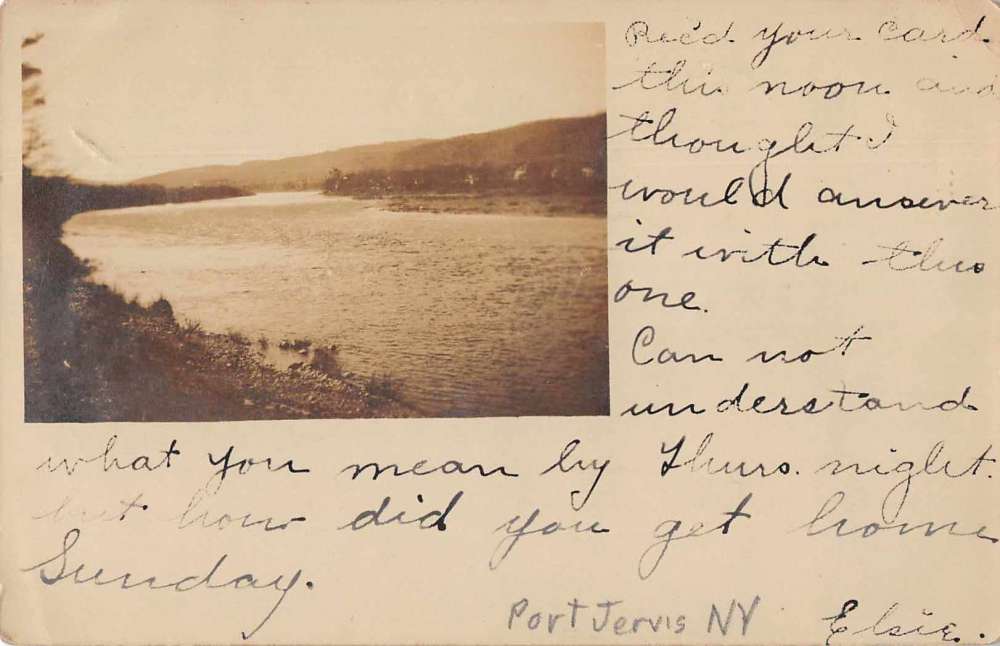 Rec'd your card
this noon and
thought I
would answer
it with this
one.
Can not
understand
what you mean by Thurs. night.
but how did you get home
Sunday.
Port Jervis NY
Elsie.